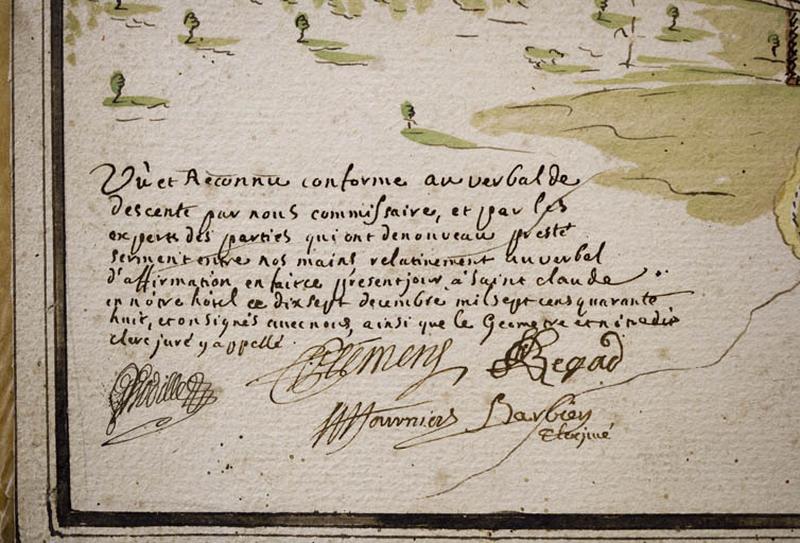 Vù et Reconnu conforme au verbal de
descente par nous commissaire, et par les
experts des parties qui ont denouveau presté
serment entre nos mains relativement au verbal
d'affirmation en fait ce présent jour à Saint claude
en nôtre hôtel ce dix sept decembre mil sept cens quarante
huit, et on signés avec nous, ainsi que le Geometre et nôtre dit
clerc juré y appellé
Clemens Regad
M Fournier Barbier
Clerc juré